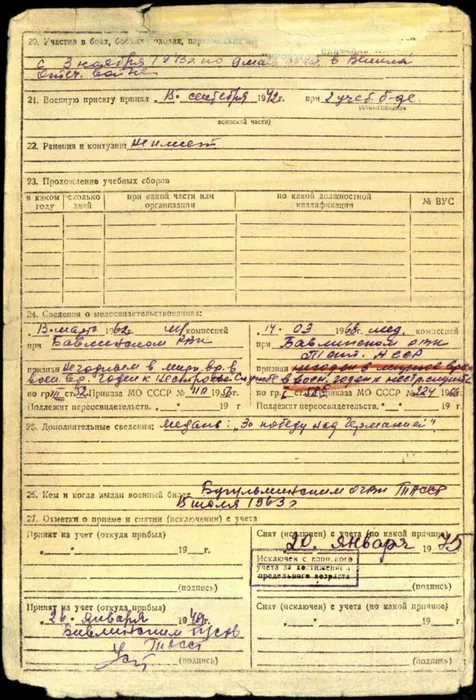 20. Участие в боях, боевых походах,
с 3 ноября 194 по 9 мая в Велик
отеч. войне
21. Военную присягу принял "15" сентября 1942г. при 2 учеб. б-де.
воинской части)
22. Ранения и контузии не имеет
23. Прохождение учебных сборов
в каком году | сколько дней | при какой части или организации | по какой должностной квалификации | № ВУС
24. Сведения о медосвидетельствованиях:
"13" марта 1962г. комиссией
при Бавлинском РВК
признан негодным в мирн. вр. в
воен. вр. годен к нестроевой службе
по гр. III ст. Приказа МО СССР № 110 1956г.
Подлежит переосвидетельств. "___" ___ 19__г.
"14" 03 1966г. мед. комиссией
при Бавлинском РВК
Тат. АССР
признан
в воен. годен к нестр. службе
по гр. I ст. Приказа МО СССР № 224 1966г.
Подлежит переосвидетельств. "___" ___ 19__г.
25. Дополнительные сведения: медаль: "За победу над Германией"
26. Кем и когда выдан военный билет Бугульминским ОГВК ТАССР
15 июля 1963г.
27. Отметки о приеме и снятии (исключении) с учета
Принят на учет (откуда прибыл)
"___" ___ 19__г.
(подпись)
Снят (исключен) с учета (по какой причине)
20. января 1975
Исключен с воинского
учета за достижением
предельного возраста
(подпись)
Принят на учет (откуда прибыл)
"26" января 1948г.
Бавлинским
ТАССР
(подпись)
Снят (исключен) с учета (по какой причине)
"___" ___ 19__г.
(подпись)